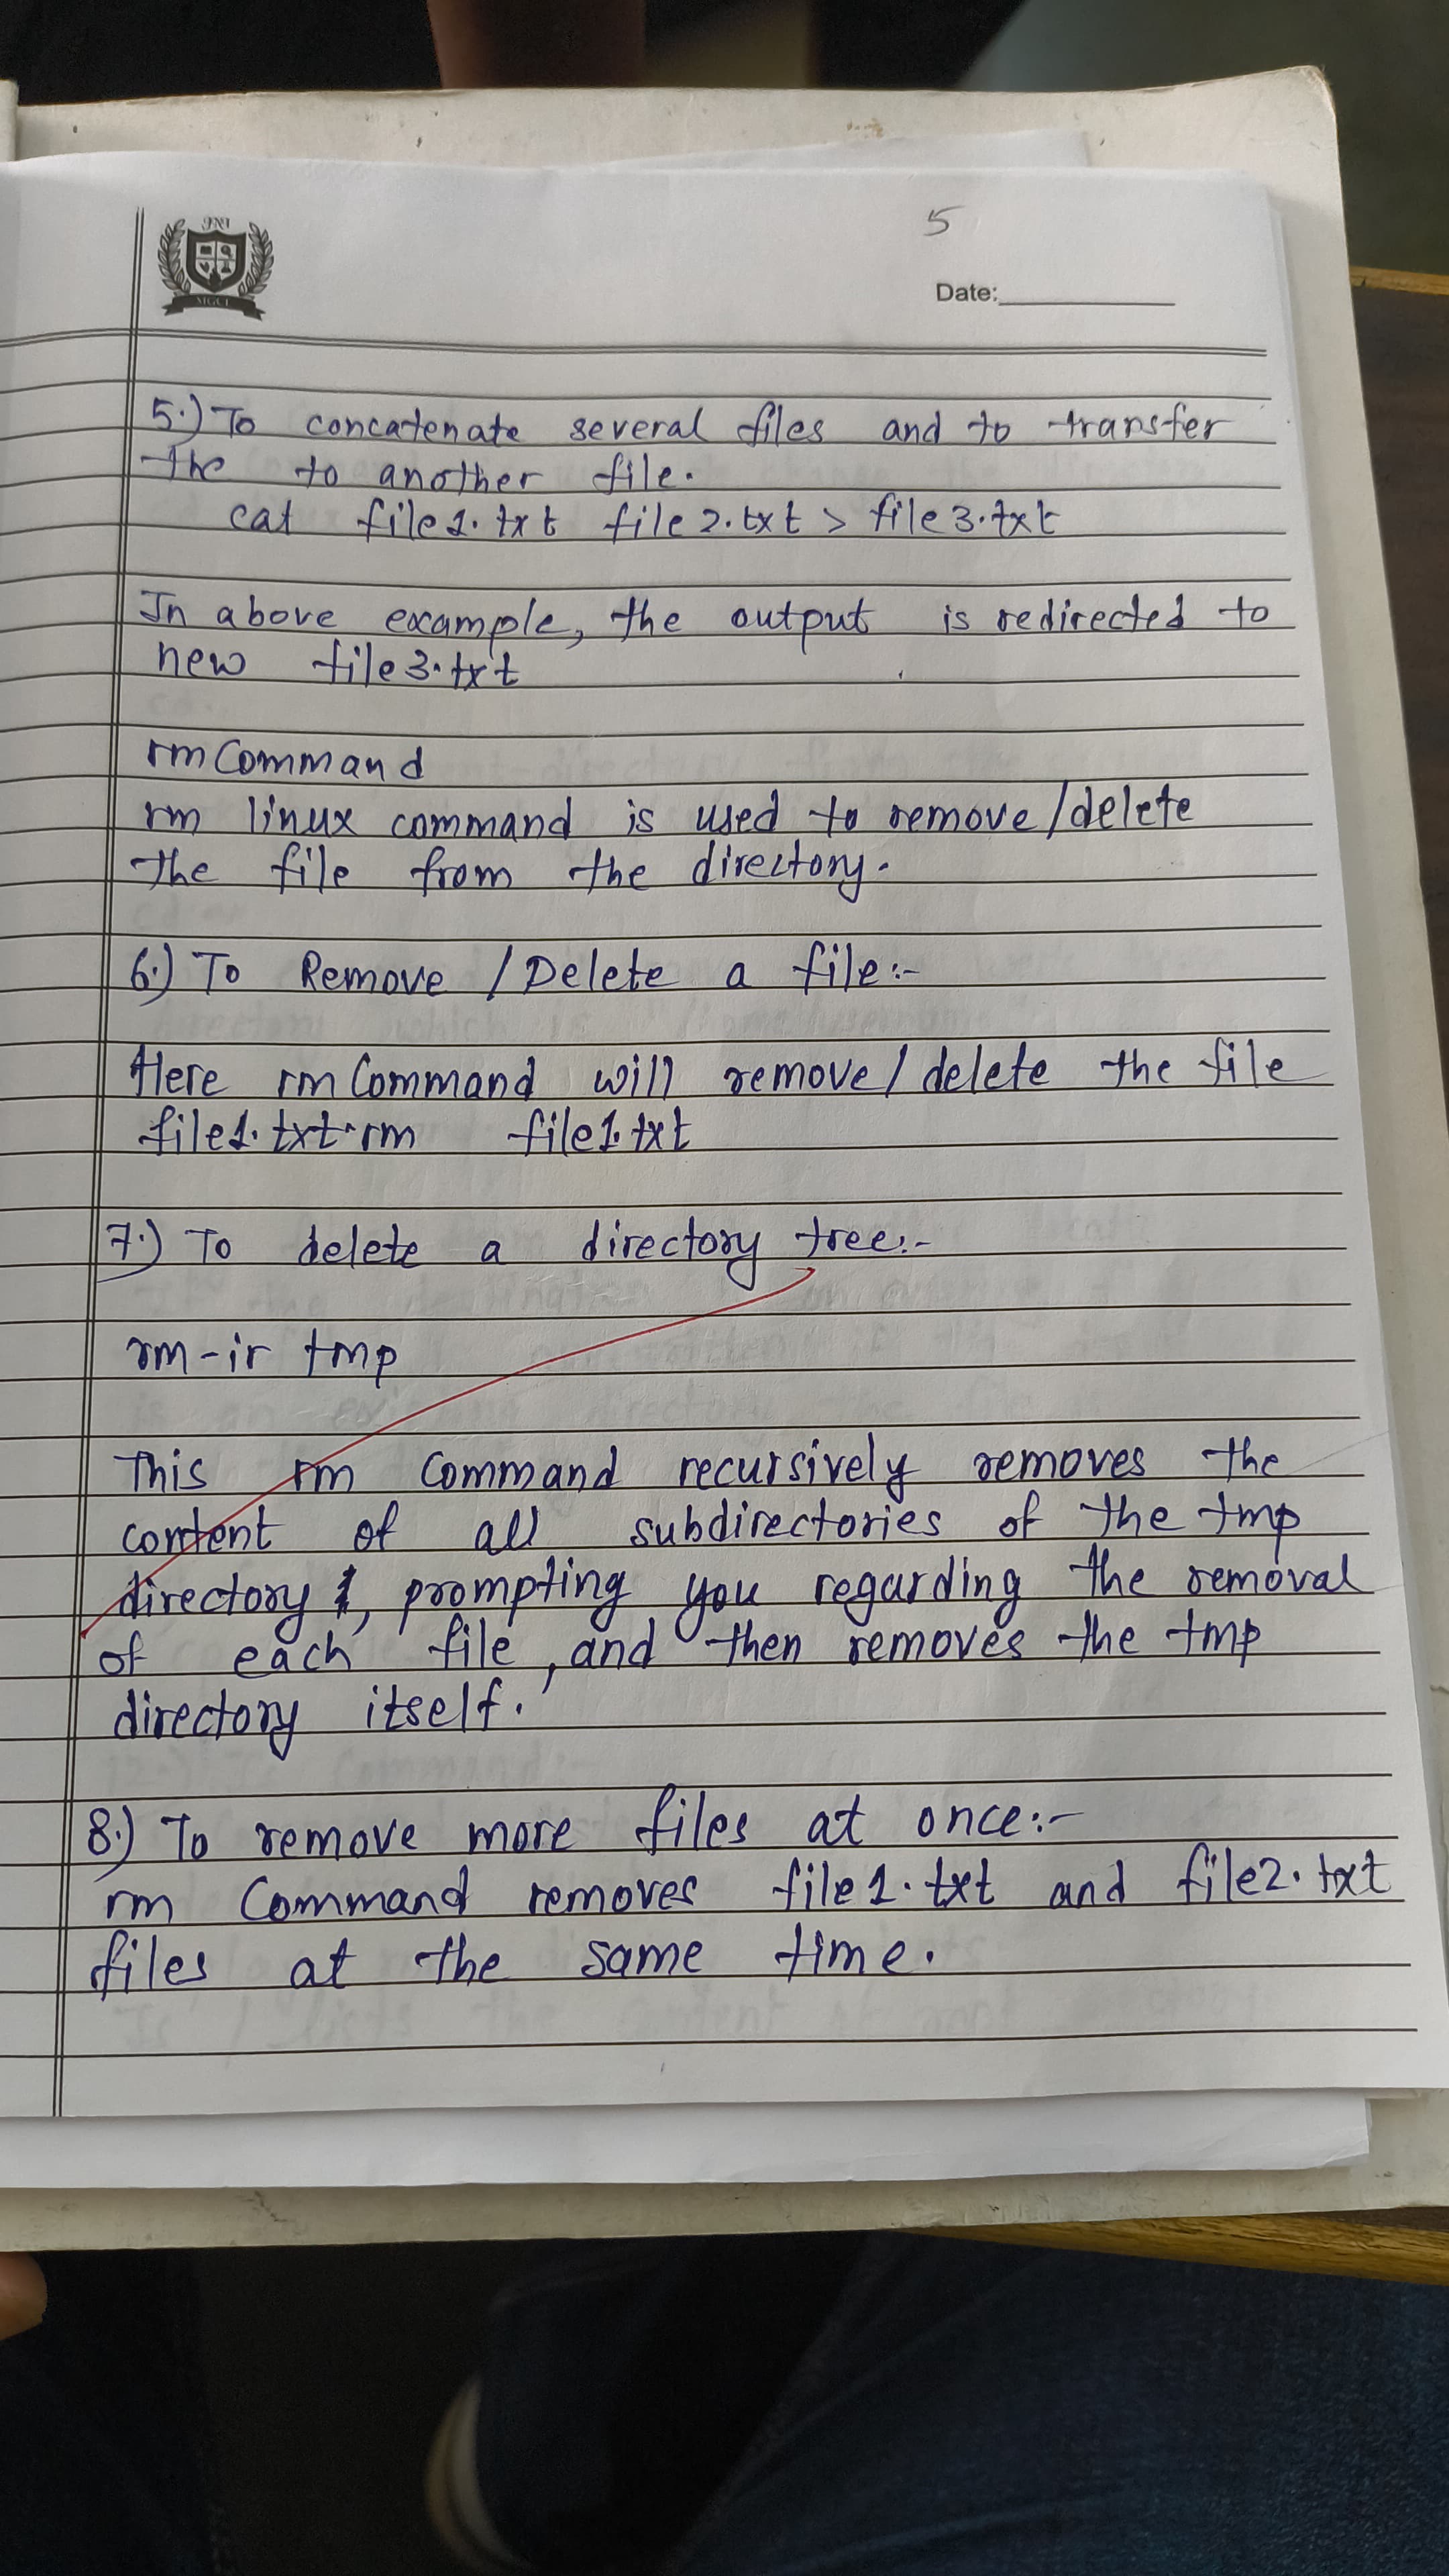 JNI
MGCI
5
Date:
5.) To concatenate several files and to transfer
the to another file.
cat file1.txt file2.txt > file3.txt
In above example, the output is redirected to
new file3.txt
rm Command
rm linux command is used to remove/delete
the file from the directory.
6.) To Remove / Delete a file:-
Here rm Command will remove/delete the file
file1.txt.rm file1.txt
7.) To delete a directory tree:-
rm -ir tmp
This rm Command recursively removes the
content of all subdirectories of the tmp
directory, prompting you regarding the removal
of each file, and then removes the tmp
directory itself.
8.) To remove more files at once:-
rm Command removes file1.txt and file2.txt
files at the same time.